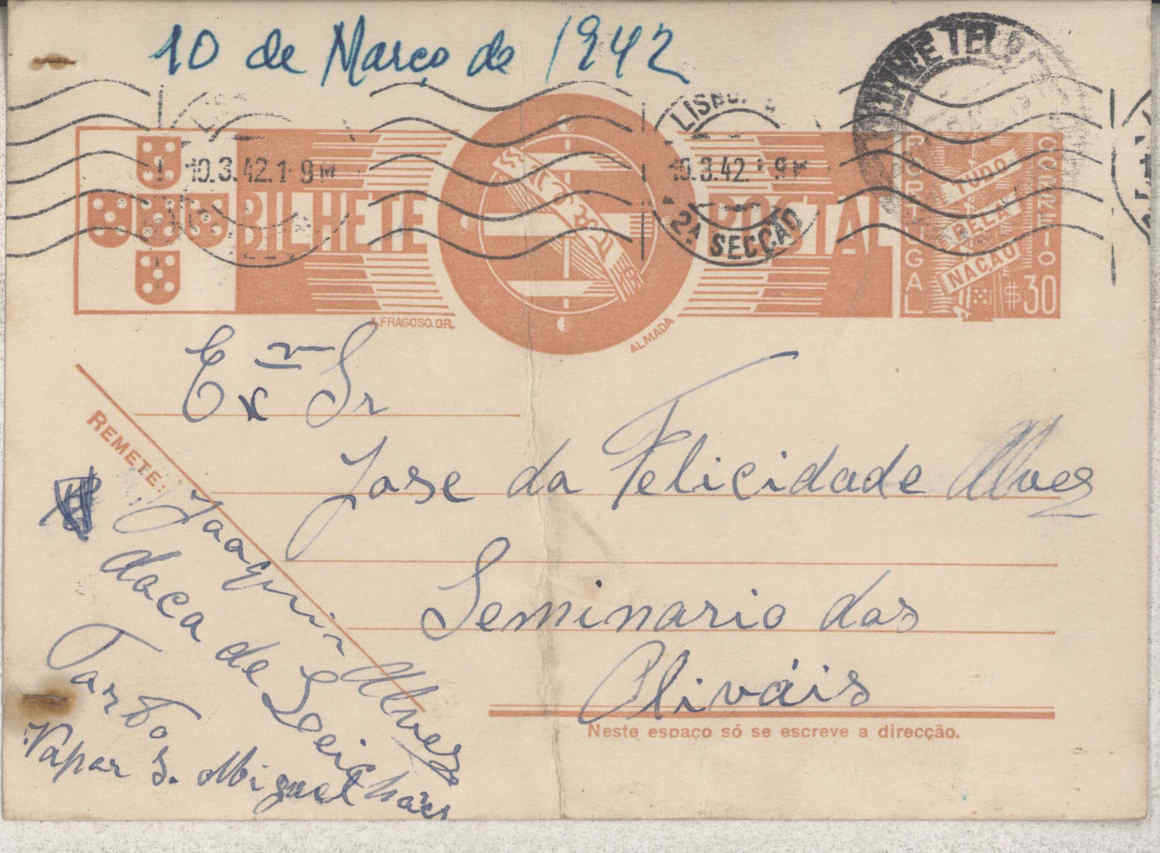 10 de Março de 1942
LISBOA
10.3.42.1 9M
10.3.42.1 9M
2ª SECCÃO
BILHETE POSTAL
PORTUGAL
CORREIO
TUDO
PELA
NAÇÃO
$30
A. FRAGOSO. GR.
ALMADA
Exmr Sr
Jose da Felicidade Alves
Seminario dos
Oliváis
Neste espaço só se escreve a direcção.
REMETE:
Joaquin Alves
doca de Leichões
Vapor S. Miguel